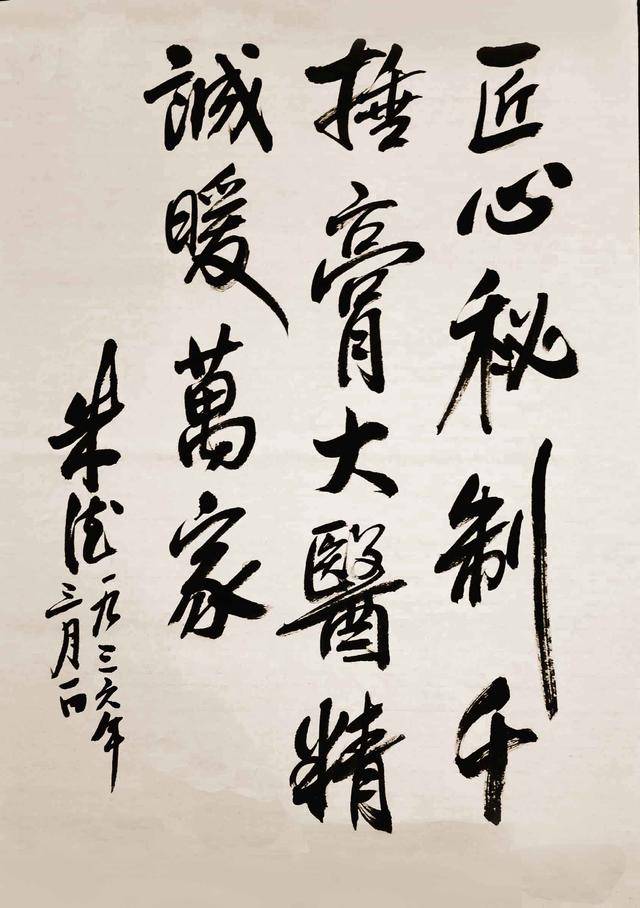 匠心秘制千
捶膏大醫精
誠暖萬家
朱德一九三六年
三月一日